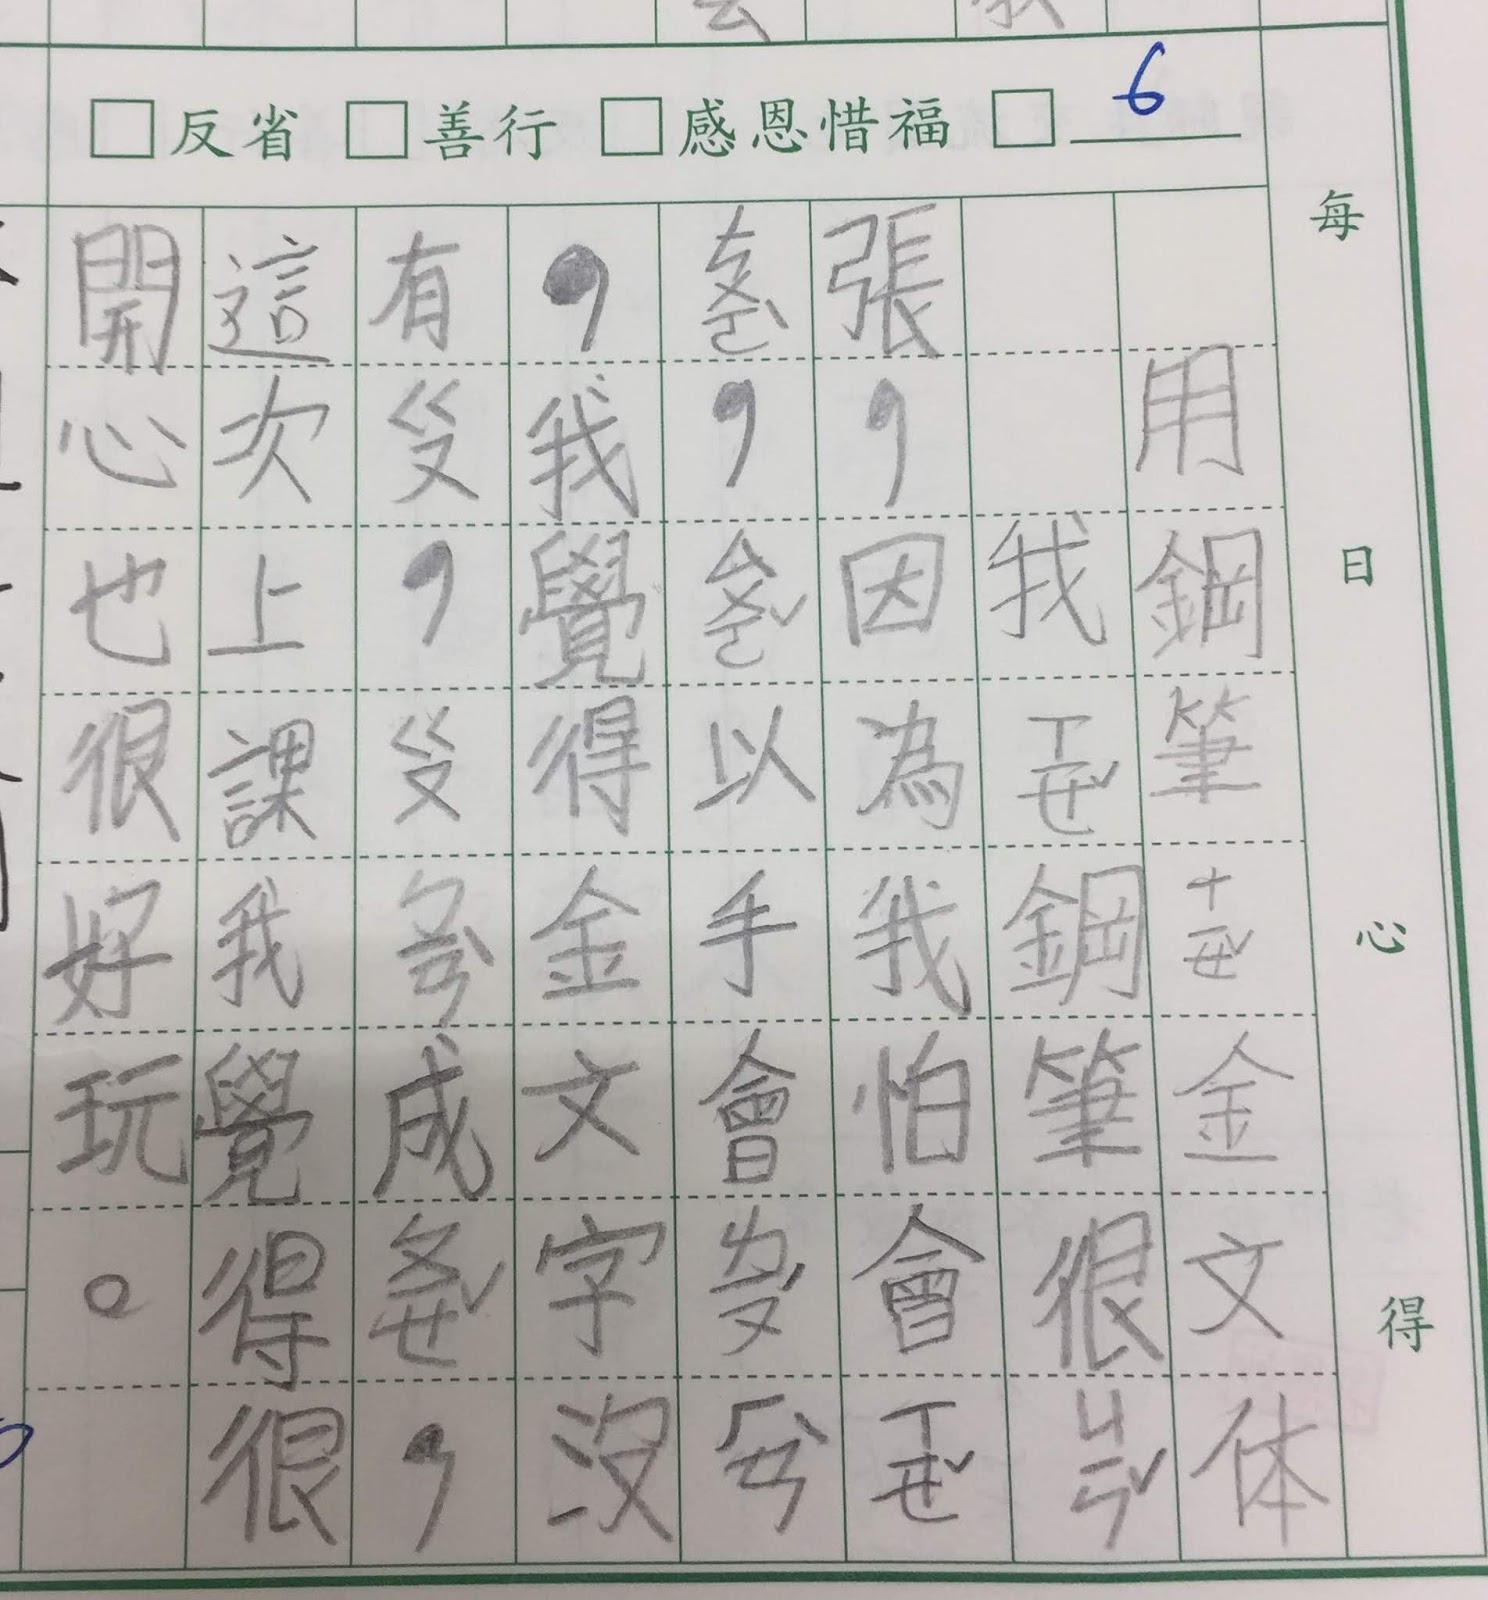 每日心得
□反省 □善行 □感恩惜福 □ 6
用鋼筆ㄒㄧㄝˇ金文体
我ㄒㄧㄝˇ鋼筆很ㄐㄧㄣˇ
張，因為我怕會ㄒㄧㄝˇ
ㄘㄨㄛˋ，ㄙㄨㄛˇ以手會ㄌㄧㄡˊㄏㄢˋ
，我覺得金文字沒
有ㄍㄡ，ㄍㄡㄅㄧㄢˋ成，
這次上課我覺得很
開心也很好玩。